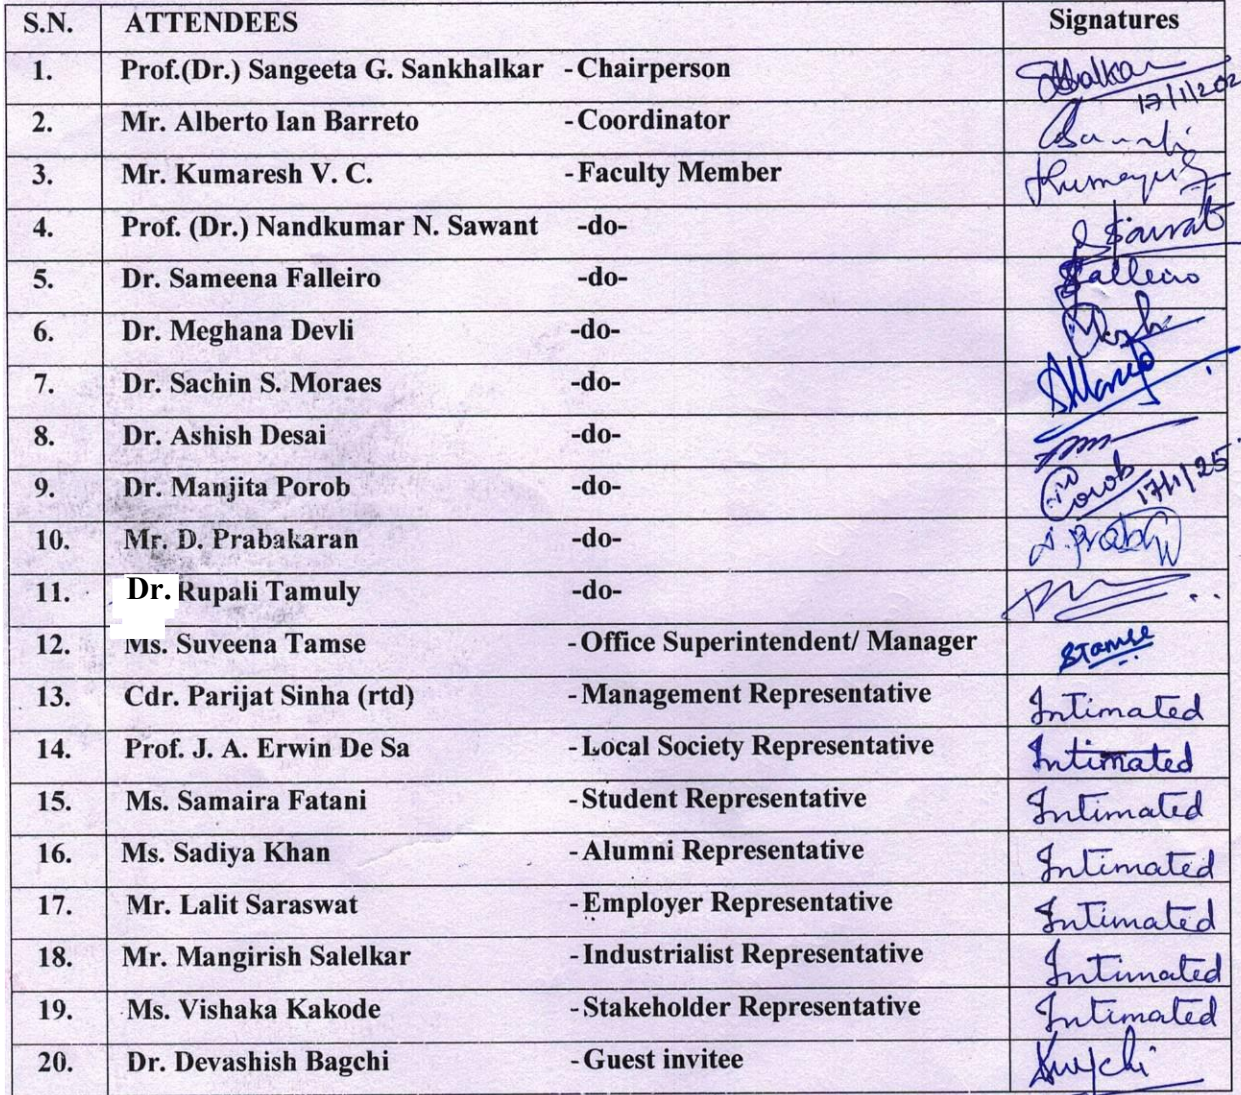 S.N. ATTENDEES Signatures
1. Prof.(Dr.) Sangeeta G. Sankhalkar -Chairperson
17/1/202
2. Mr. Alberto Ian Barreto -Coordinator
3. Mr. Kumaresh V. C. -Faculty Member
4. Prof. (Dr.) Nandkumar N. Sawant -do- Sawant
5. Dr. Sameena Falleiro -do- Falleiro
6. Dr. Meghana Devli -do-
7. Dr. Sachin S. Moraes -do-
8. Dr. Ashish Desai -do-
9. Dr. Manjita Porob -do- Porob 17/1/25
10. Mr. D. Prabakaran -do-
11. Dr. Rupali Tamuly -do-
12. Ms. Suveena Tamse -Office Superintendent/ Manager STamse
13. Cdr. Parijat Sinha (rtd) -Management Representative Intimated
14. Prof. J. A. Erwin De Sa -Local Society Representative Intimated
15. Ms. Samaira Fatani -Student Representative Intimated
16. Ms. Sadiya Khan -Alumni Representative Intimated
17. Mr. Lalit Saraswat -Employer Representative Intimated
18. Mr. Mangirish Salelkar -Industrialist Representative Intimated
19. Ms. Vishaka Kakode -Stakeholder Representative Intimated
20. Dr. Devashish Bagchi -Guest invitee